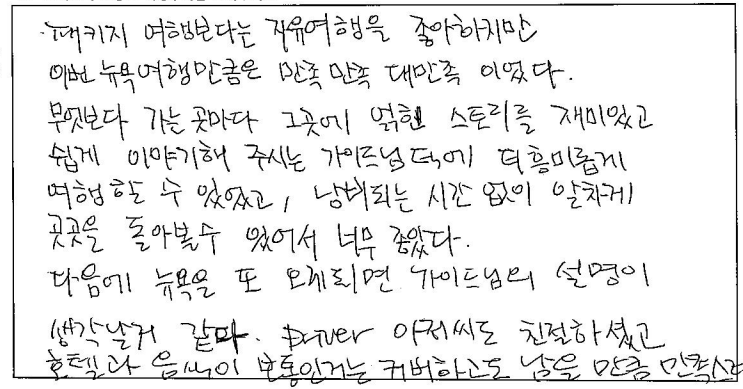 패키지 여행보다는 자유여행을 좋아하지만
이번 뉴욕여행만큼은 만족 만족 대만족 이었다.
무엇보다 가는 곳마다 그곳에 얽힌 스토리를 재미있고
쉽게 이야기해 주시는 가이드님 덕에 더 흥미롭게
여행 할 수 있었고, 낭비되는 시간 없이 알차게
곳곳을 돌아볼수 있어서 너무 좋았다.
다음에 뉴욕을 또 오게되면 가이드님의 설명이
생각날거 같다. Driver 아저씨도 친절하셨고
호텔과 음식이 보통인거는 커버하고도 남을 만큼